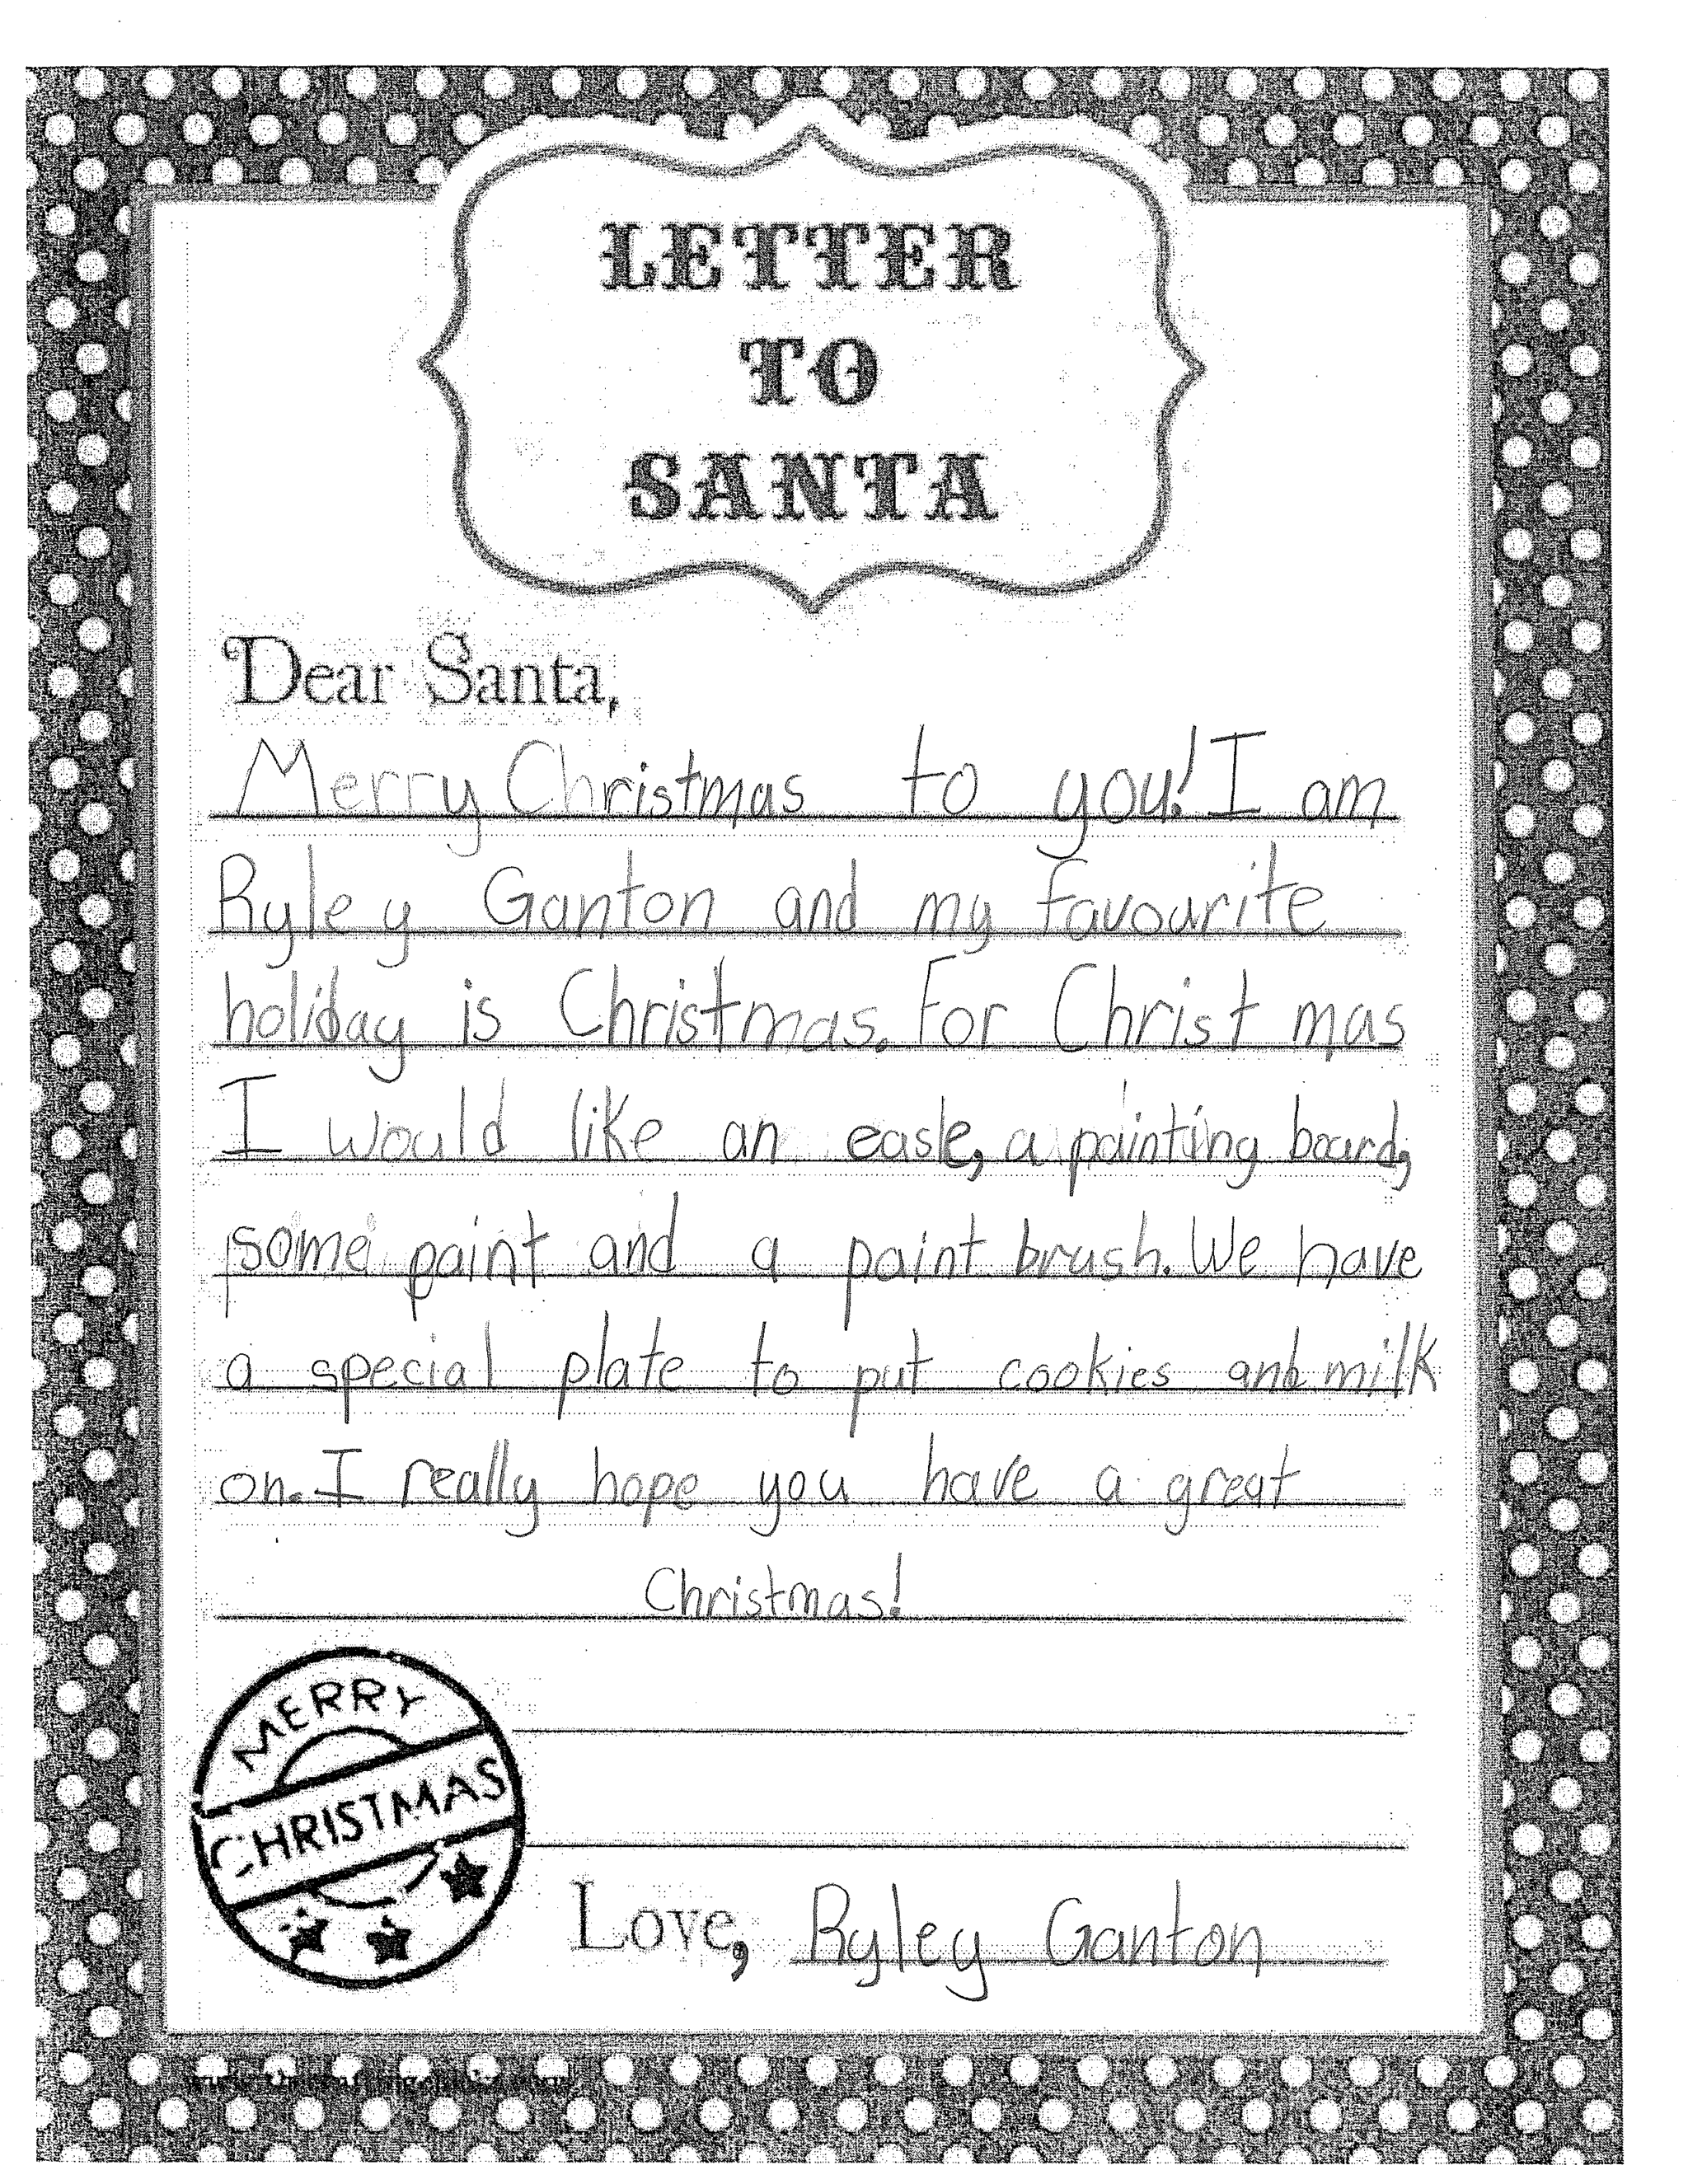 LETTER
TO
SANTA
Dear Santa,
Merry Christmas to you! I am
Ryley Ganton and my favourite
holiday is Christmas. For Christ mas
I would like an easle, a painting board,
some paint and a paint brush. We have
a special plate to put cookies and milk
on. I really hope you have a great
Christmas!
MERRY
CHRISTMAS
Love, Ryley Ganton